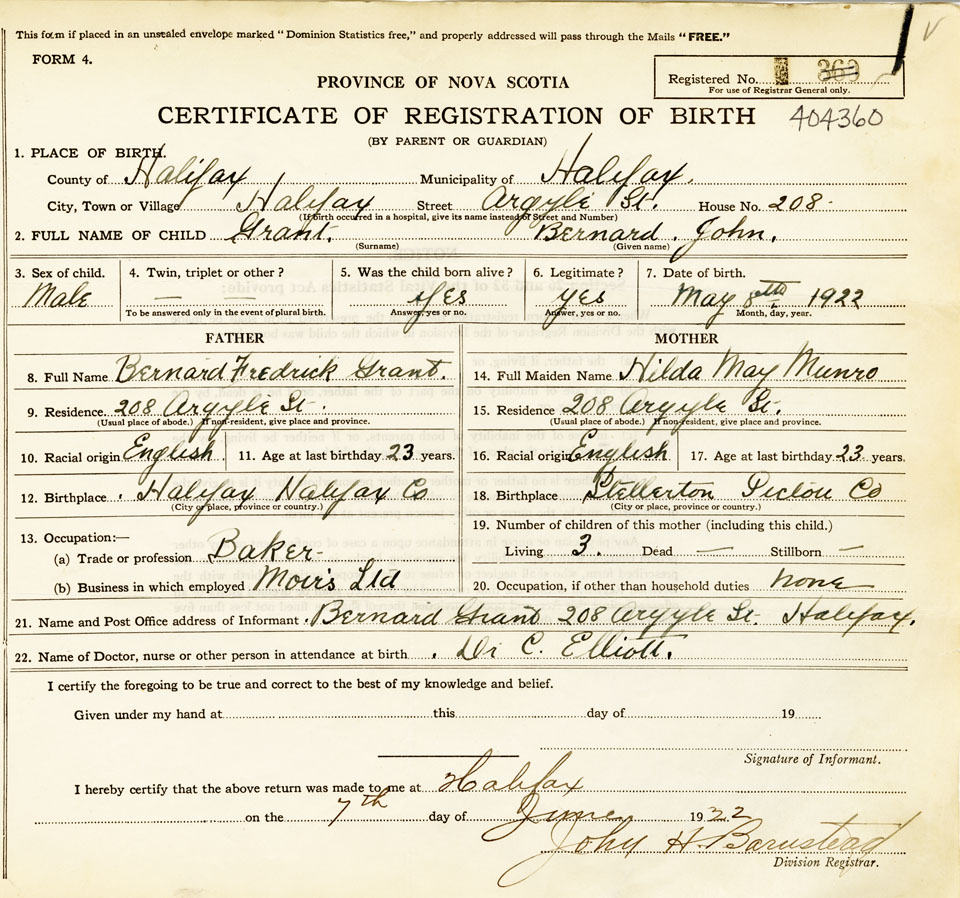 This form if placed in an unsealed envelope marked "Dominion Statistics free," and properly addressed will pass through the Mails "FREE."
FORM 4.
PROVINCE OF NOVA SCOTIA
Registered No. 360
For use of Registrar General only.
CERTIFICATE OF REGISTRATION OF BIRTH 404360
(BY PARENT OR GUARDIAN)
1. PLACE OF BIRTH.
County of Halifax Municipality of Halifax.
City, Town or Village Halifax Street Argyle St. House No. 208
(If birth occurred in a hospital, give its name instead of Street and Number)
2. FULL NAME OF CHILD Grant. Bernard. John.
(Surname) (Given name)
3. Sex of child. 4. Twin, triplet or other? 5. Was the child born alive? 6. Legitimate? 7. Date of birth.
Male — — yes yes May 8th 1922
To be answered only in the event of plural birth. Answer, yes or no. Answer, yes or no. Month, day, year.
FATHER
8. Full Name Bernard Fredrick Grant.
9. Residence. 208 Argyle St.
(Usual place of abode.) If non-resident, give place and province.
10. Racial origin English 11. Age at last birthday 23 years.
12. Birthplace Halifax Halifax Co
(City or place, province or country.)
13. Occupation:—
(a) Trade or profession Baker-
(b) Business in which employed Moir's Ltd
MOTHER
14. Full Maiden Name Hilda May Munro
15. Residence 208 Argyle St.
(Usual place of abode.) If non-resident, give place and province.
16. Racial origin English 17. Age at last birthday 23 years.
18. Birthplace Stellerton Pictou Co
(City or place, province or country.)
19. Number of children of this mother (including this child.)
Living 3. Dead — Stillborn —
20. Occupation, if other than household duties none
21. Name and Post Office address of Informant. Bernard Grant 208 Argyle St. Halifax.
22. Name of Doctor, nurse or other person in attendance at birth. Dr C. Elliott.
I certify the foregoing to be true and correct to the best of my knowledge and belief.
Given under my hand at this day of 19
Signature of Informant.
I hereby certify that the above return was made to me at Halifax
on the 7th day of June 1922
John H Barnstead
Division Registrar.